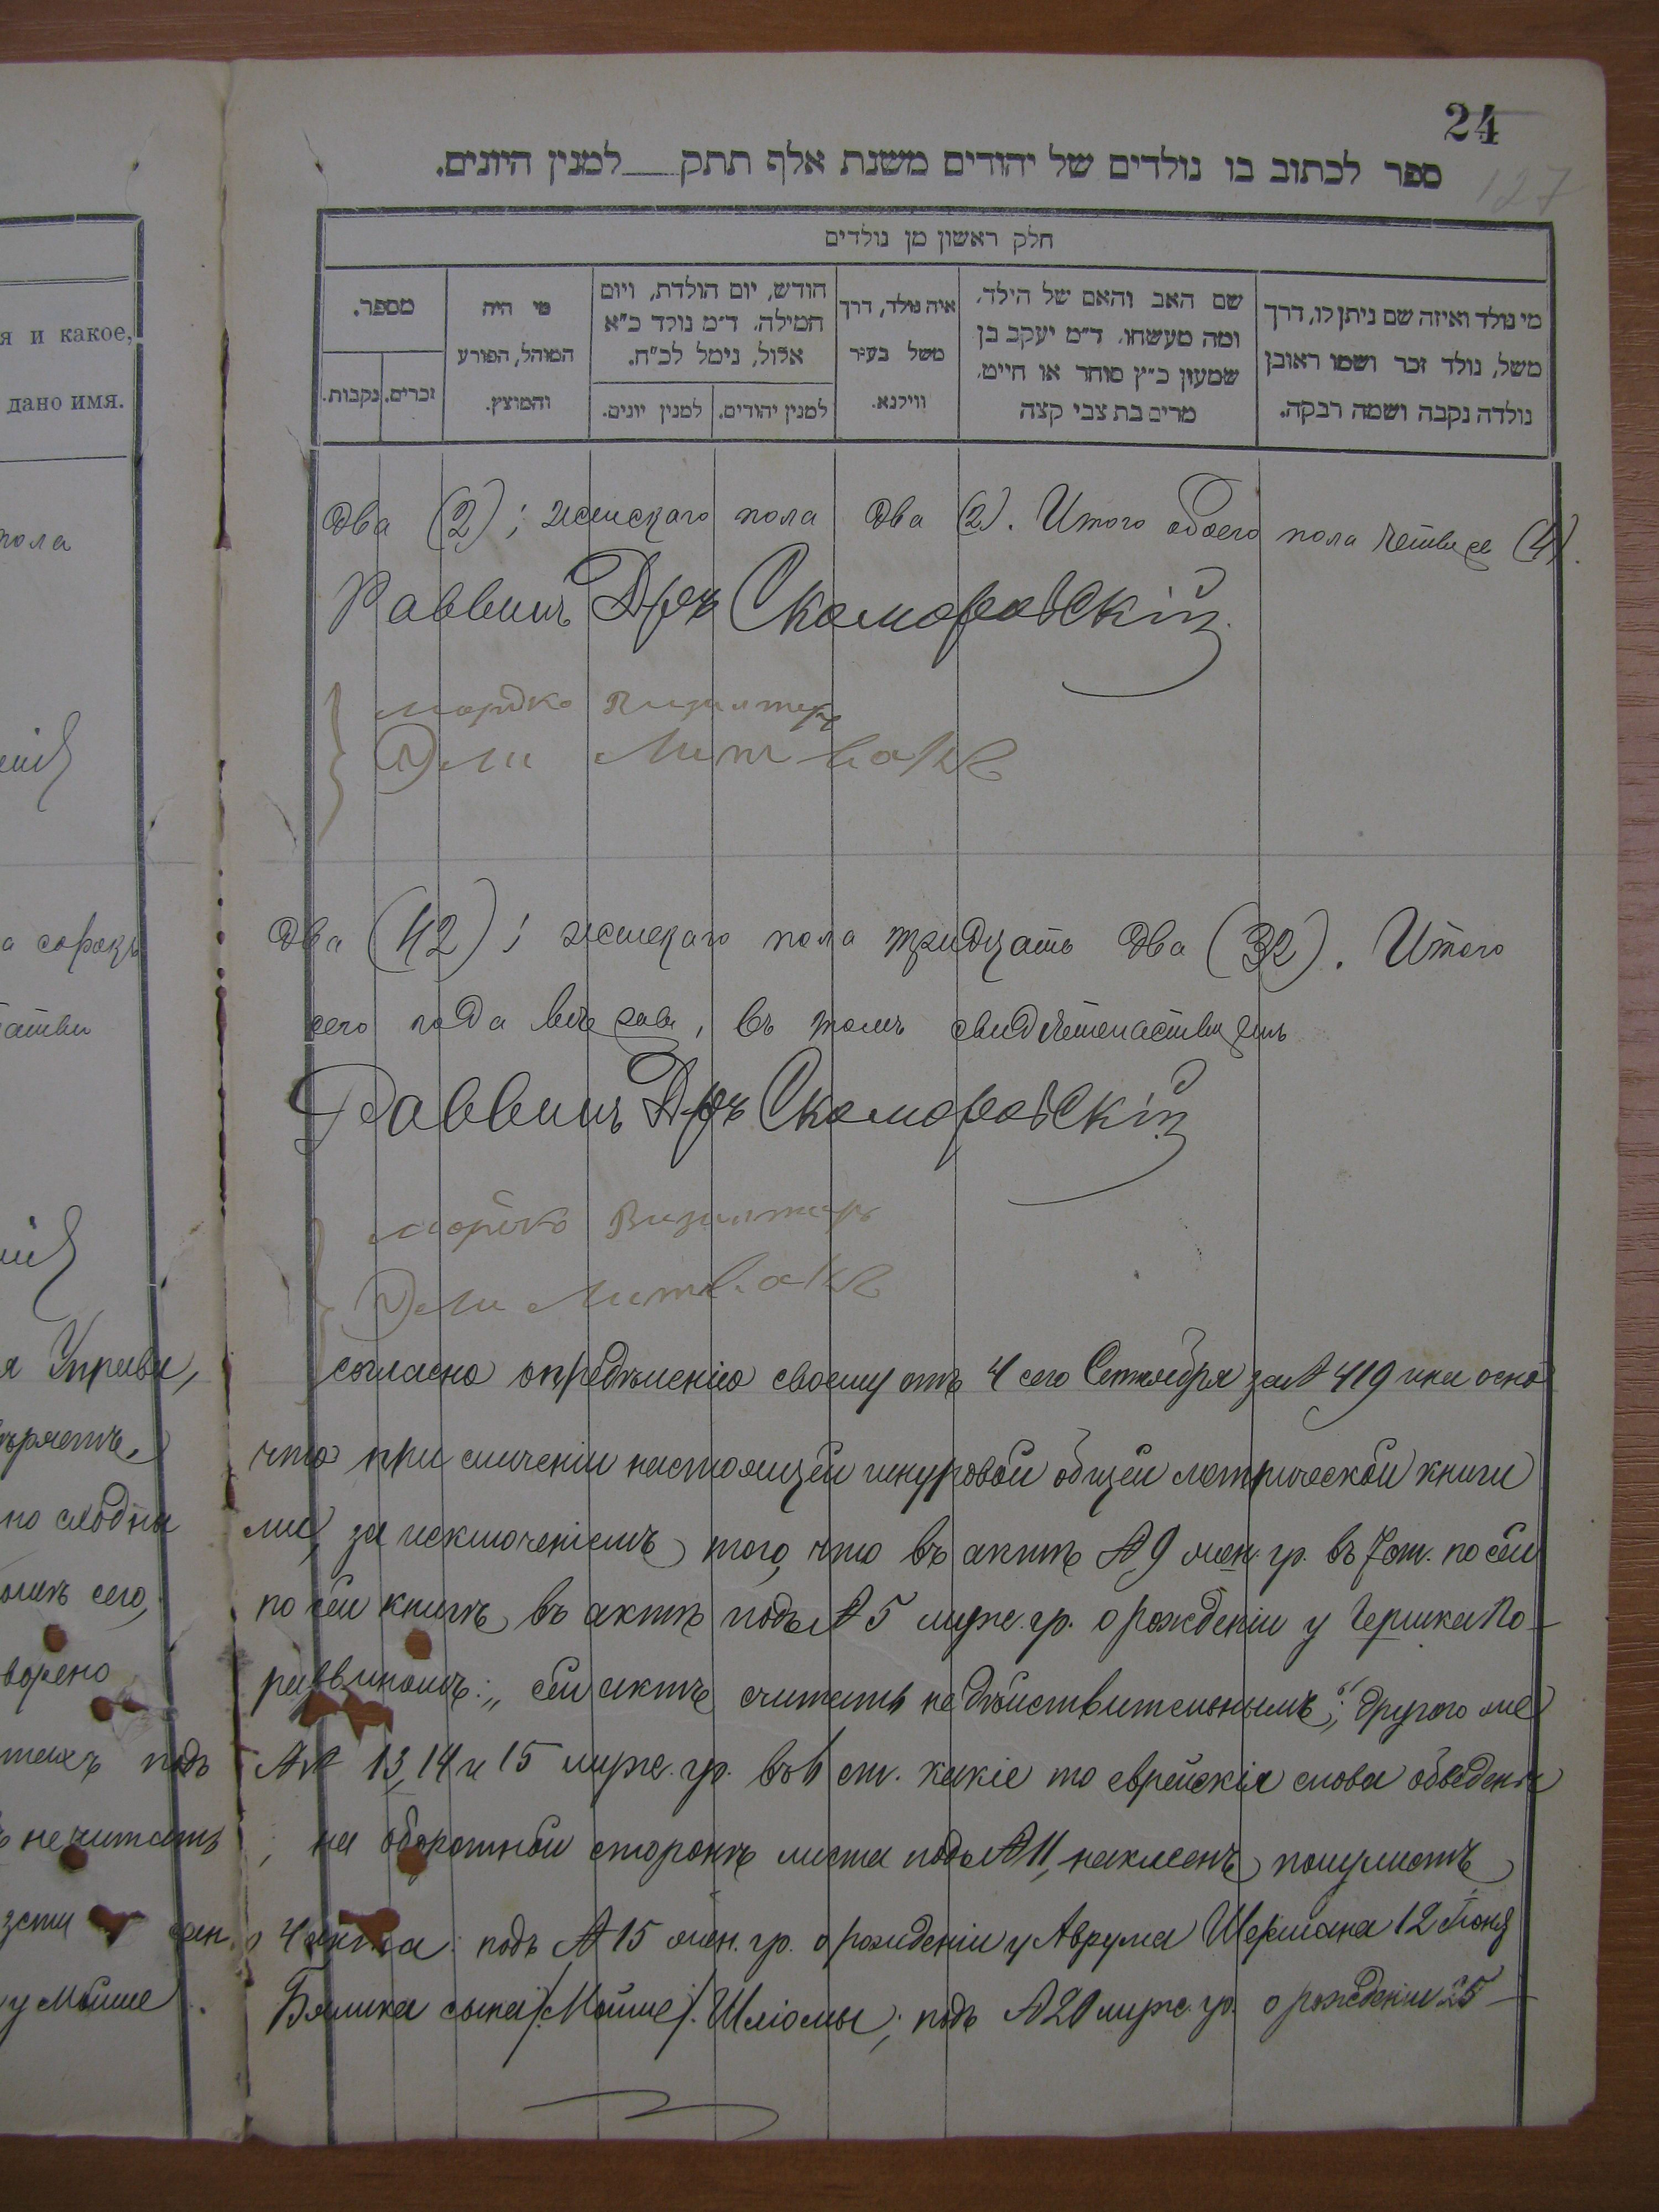 24
127
ספר לכתוב בו נולדים של יהודים משנת אלף תתק למנין היונים.
חלק ראשון מן נולדים
מי נולד ואיזה שם ניתן לו, דרך משל, נולד זכר ושמו ראובן נולדה נקבה ושמה רבקה.
שם האב והאם של הילד, ומה מעשהו. ד״מ יעקב בן שמעון כ״ץ סוחר או חייט, מרים בת צבי קצה
איה נולד, דרך משל בעיר ווילנא.
חודש, יום הולדת, ויום המילה. ד״מ נולד כ״א אלול, נימל לכ״ח.
למנין יהודים.
למנין יונים.
מי היה המוהל, הפורע והמוצץ.
מספר.
זכרים.
נקבות.
я и какое,
дано имя.
пола
а сорокъ
я Управа,
но сходны
сего,
подъ
не читать
у Мойше
два (2); женскаго пола два (2). Итого обоего пола четыре (4).
Раввинъ Д-ръ Скоморовскій
Мордко Визилтеръ
Эли Литвакъ
два (42); женскаго пола тридцать два (32). Итого
сего года въ, въ томъ свидѣтельствуемъ
Раввинъ Д-ръ Скоморовскій
Мордко Визилтеръ
Эли Литвакъ
согласно опредѣленію своему отъ 4 сего Сентября за № 419 и на осно
что при сличеніи настоящей шнуровой общей метрической книги
ми, за исключеніемъ того, что въ актѣ № 9 жен. гр. въ 7 ст. по сей
по сей книгѣ въ актѣ подъ № 5 муж. гр. о рожденіи у Гершка По-
раввиномъ: „сей актъ считать недѣйствительнымъ"; другого же
№№ 13, 14 и 15 муж. гр. въ 6 ст. какіе то еврейскія слова обведены
; на оборотной сторонѣ листа подъ № 11, наклеенъ полулистъ
4 акта: подъ № 15 жен. гр. о рожденіи у Аврума Шермана 12 Іюня
Бялика сына /Мойше/ Шліомы; подъ № 20 муж. гр. о рожденіи 25 —